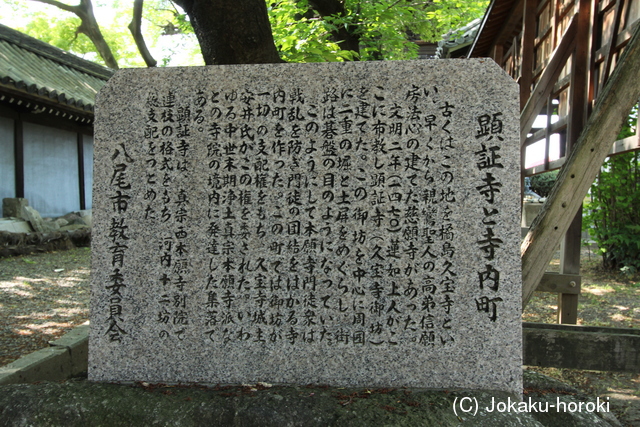 顕証寺と寺内町
古くはこの地を橘島久宝寺とい
い、早くから親鸞聖人の高弟信願
房法心の建てた慈願寺があった。
文明二年(一四七〇)蓮如上人がこ
こに布教し顕証寺(久宝寺御坊)
を建てた。この御坊を中心に周囲
に二重の堀と土屏をめぐらし、街
路は碁盤の目のようになっていた
このようにして本願寺門徒衆は
戦乱を防ぎ門徒の団結をはかる寺
内町を作った。この町では御坊が
一切の支配権をもち、久宝寺城主
安井氏がこの権を委された。いわ
ゆる中世末期浄土真宗本願寺派な
どの寺院の境内に発達した集落で
ある。
顕証寺は、真宗西本願寺別院で
連枝の格式をもち、河内十二坊の
支配をつとめた
八尾市教育委員会
(C) Jokaku-horoki